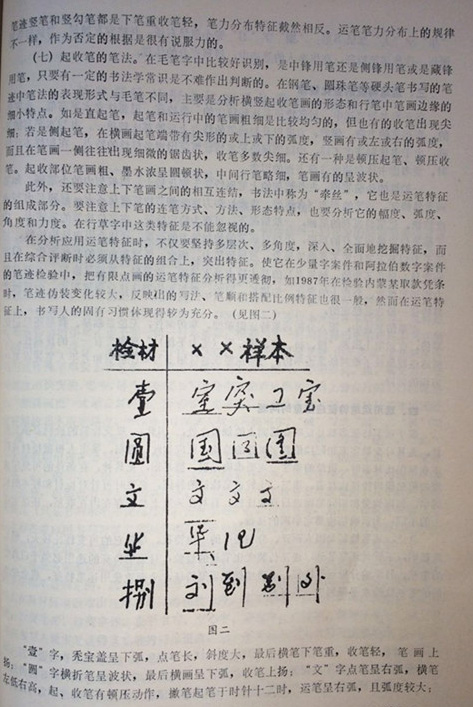 笔迹竖笔和竖勾笔都是下笔重收笔轻，笔力分布特征截然相反。运笔笔力分布上的规律
不一样，作为否定的根据是很有说服力的。
（七）起收笔的笔法。在毛笔字中比较好识别，是中锋用笔还是侧锋用笔或是藏锋
用笔，只要有一定的书法学常识是不难作出判断的。在钢笔、圆珠笔等硬头笔书写的笔
迹中笔法的表现形式与毛笔不同，主要是分析横竖起收笔画的形态和行笔中笔画边缘的
细小特点。如是直起笔，起笔和运行中的笔画粗细是比较均匀的，但也有的收笔出现尖
细；若是侧起笔，在横画起笔端带有尖形的或上或下的弧度，竖画有或左或右的弧度，
而且在笔画一侧往往出现细微的锯齿状，收笔多数尖细。还有一种是顿压起笔、顿压收
笔。起收部位笔画粗、墨水浓呈圆顿状，中间行笔略细，笔画有的呈波状。
此外，还要注意上下笔画之间的相互连结，书法中称为“牵丝”，它也是运笔特征
的组成部分。要注意上下笔的连笔方式、方法、形态特点，也要分析它的幅度、弧度、
角度和力度。在行草字中这类特征是不能忽视的。
在分析应用运笔特征时，不仅要坚持多层次、多角度，深入、全面地挖掘特征，而
且在综合评断时必须从特征的组合上，突出特征。使它在少量字案件和阿拉伯数字案件
的笔迹检验中，把有限点画的运笔特征分析得更透彻，如1987年在检验内蒙某取款凭条
时，笔迹伪装变化较大，反映出的写法、笔顺和搭配比例特征也很一般，然而在运笔特
征上，书写人的固有习惯体现得较为充分。（见图二）
检材 ××样本
壹 室 突 宝
圆 国 国
文 文 文 文
捌 到 别 外
图二
“壹”字，秃宝盖呈下弧，点笔长，斜度大，最后横笔下笔重，收笔轻，笔画上
扬；“圆”字横折笔呈波状，最后横画呈下弧，收笔上扬；“文”字点笔呈右弧，横笔
左低右高，起、收笔有顿压动作，撇笔起笔于时针十二时，运笔呈右弧，且弧度较大；